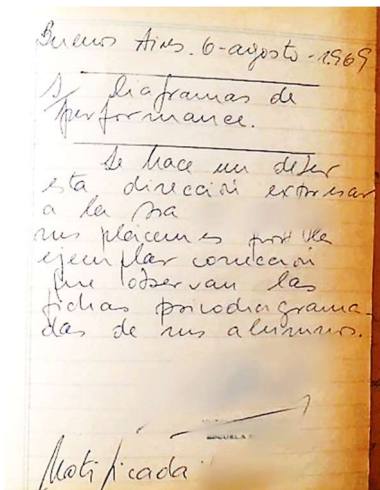 Buenos Aires. 6-agosto-1969
Diagramas de
performance.
Se hace un deber
esta dirección expresar
a la Sra
sus plácemes por la
ejemplar corrección
que observan las
fichas psicodiagrama-
das de sus alumnos.
Notificada